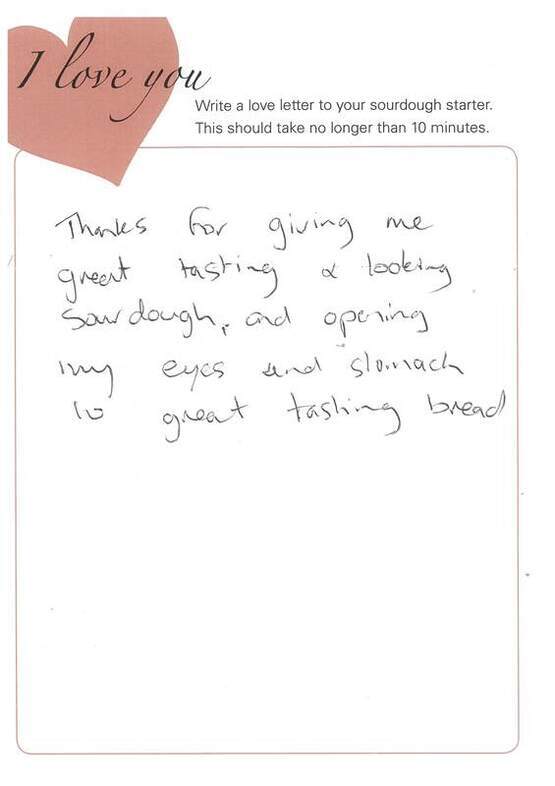 I love you
Write a love letter to your sourdough starter.
This should take no longer than 10 minutes.
Thanks for giving me
great tasting & looking
sourdough, and opening
my eyes and stomach
to great tasting bread